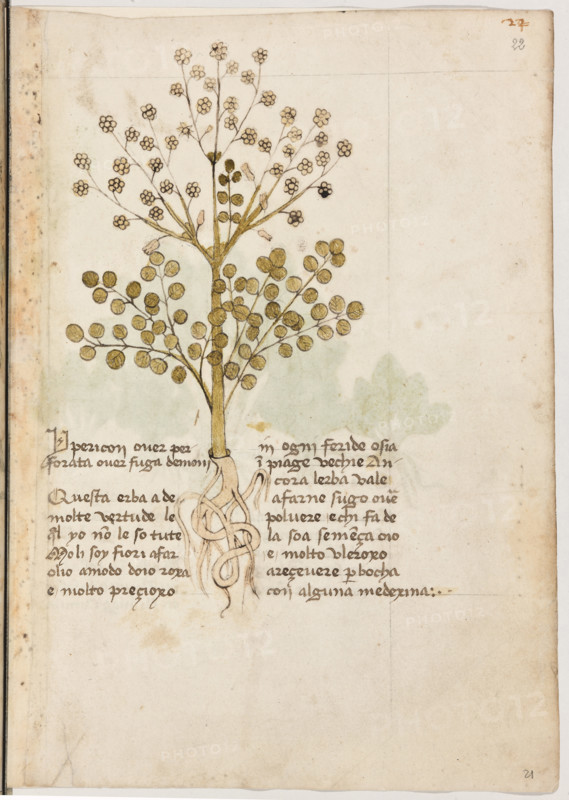 27
22
Ypericon over per
forata over fuga demonij
Questa erba a de
molte vertude le
q̃l yo nõ le so tute
Moh soy fiori afar
olio amodo doio roxa
e molto preçioxo
in ogni feride osia
ĩ piage vechie An
cora lerba vale
afarne sugo ouẽ
poluere echi fa de
la soa semẽça oio
e molto vleroxo
areçeuere p bocha
con alguna medexina:
21
PHOTO12